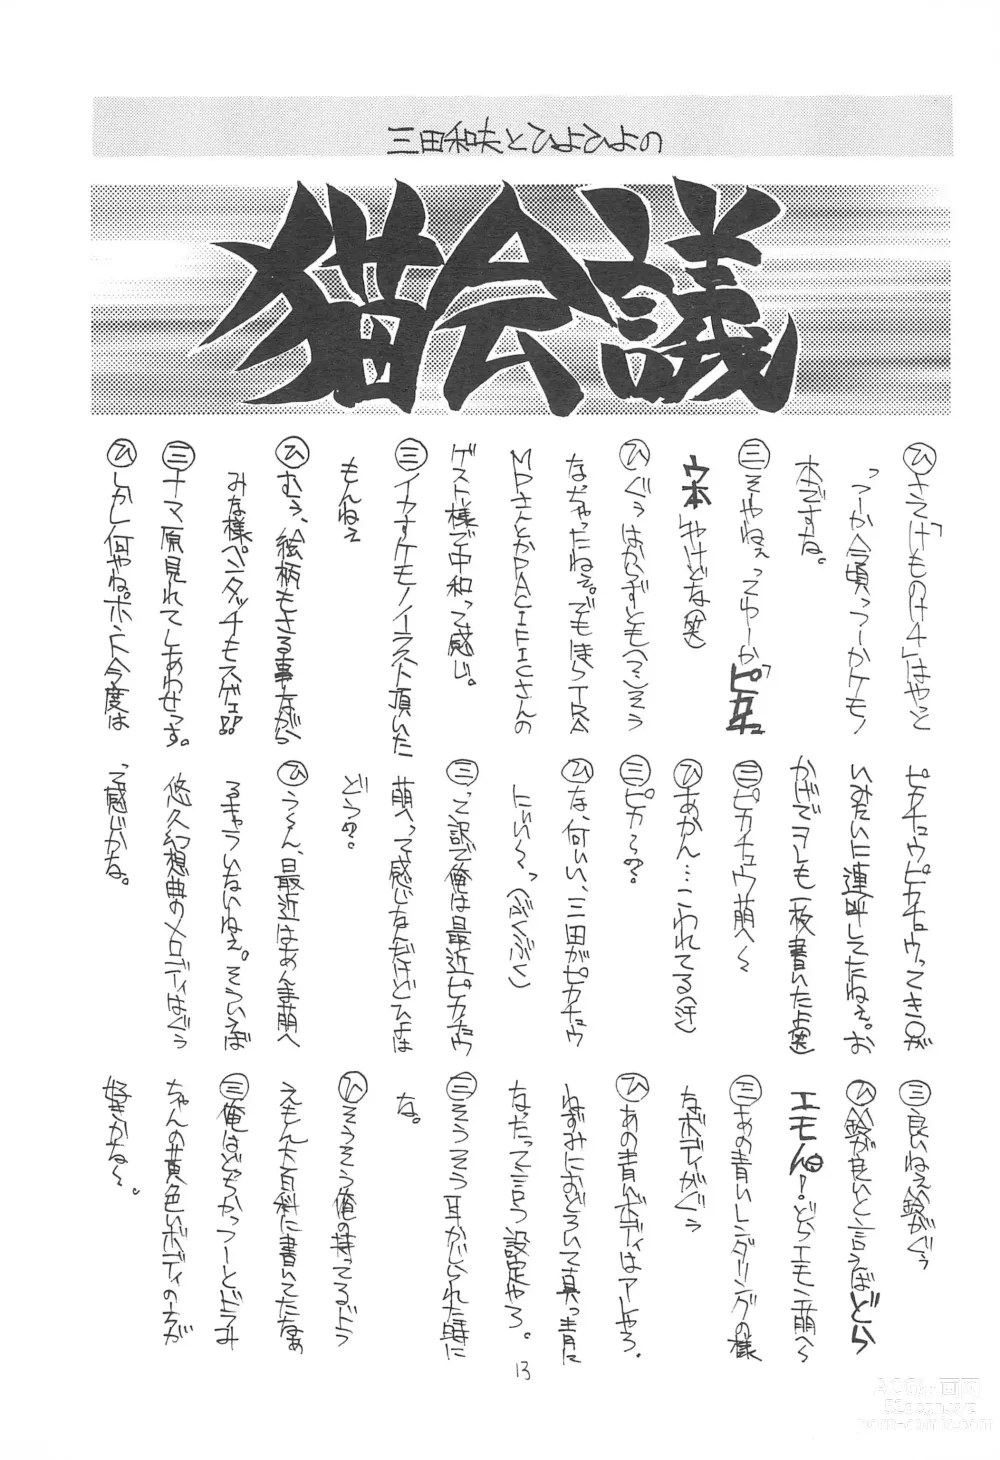 三田和夫とひよひよの
猫会議
ひさて「けものけ4」はやっと
つーか今頃っつーかケモノ
本ですな。
三そやねぇってゆーか「ピカチュ
ウ本」やけどな(笑)
ひぐぅはからずとも(マ)そう
なっちゃったねぇ。でもほらTRA
MPさんとかPACIFICさんの
ゲスト様で中和って感じ。
三イカすケモノイラスト頂いた
もんねえ
ひむぅ、絵柄もさる事ながら
みな様ペンタッチもスゲェ!!
三ナマ原見れてしあわせっす。
ひしかし何やね。ホント今度は
ピカチュウピカチュウってき〇が
いみたいに連呼してたねぇ。お
かげでヲレも一板書いたよ(笑)
三ピカチュウ萌へ〜
ひあかん…こわれてる(汗)
三ピカ〜??
ひな、何いい、三田がピカチュウ
にぃぃ〜っ(ぶくぶく)
三って訳で俺は最近ピカチュウ
萌へって感じなんだけどひよは
どう??
ひう〜ん、最近はあんま萌へ
るキャラいないねぇ。そういえば
悠久幻想曲のメロディはぐぅ
って感じかな。
三良いねえ鈴がぐぅ
ひ鈴が良いと言うばどら
エモん!どらエモン萌へ〜
三あの青いレンダリングの様
なボディがぐぅ
ひあの青いボディはアレやろ。
ねずみにおどろいて真っ青に
なったって言う設定やろ。
三そうそう耳かじられた時に
な。
ひそうそう俺の持ってるドラ
えもん大百科に書いてたなぁ
三俺はどちかっつーとドラみ
ちゃんの黄色いボディの方が
好きかな〜。
13